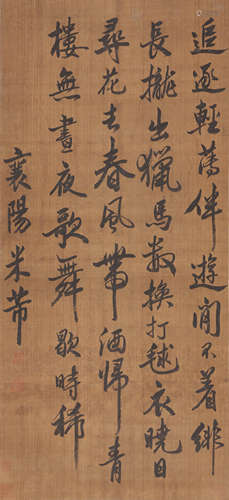 追逐輕薄伴遊閒不着緋
長攏出獵馬數換打毬衣曉日
尋花去春風帶酒歸青
樓無晝夜歌舞歇時稀
襄陽米芾